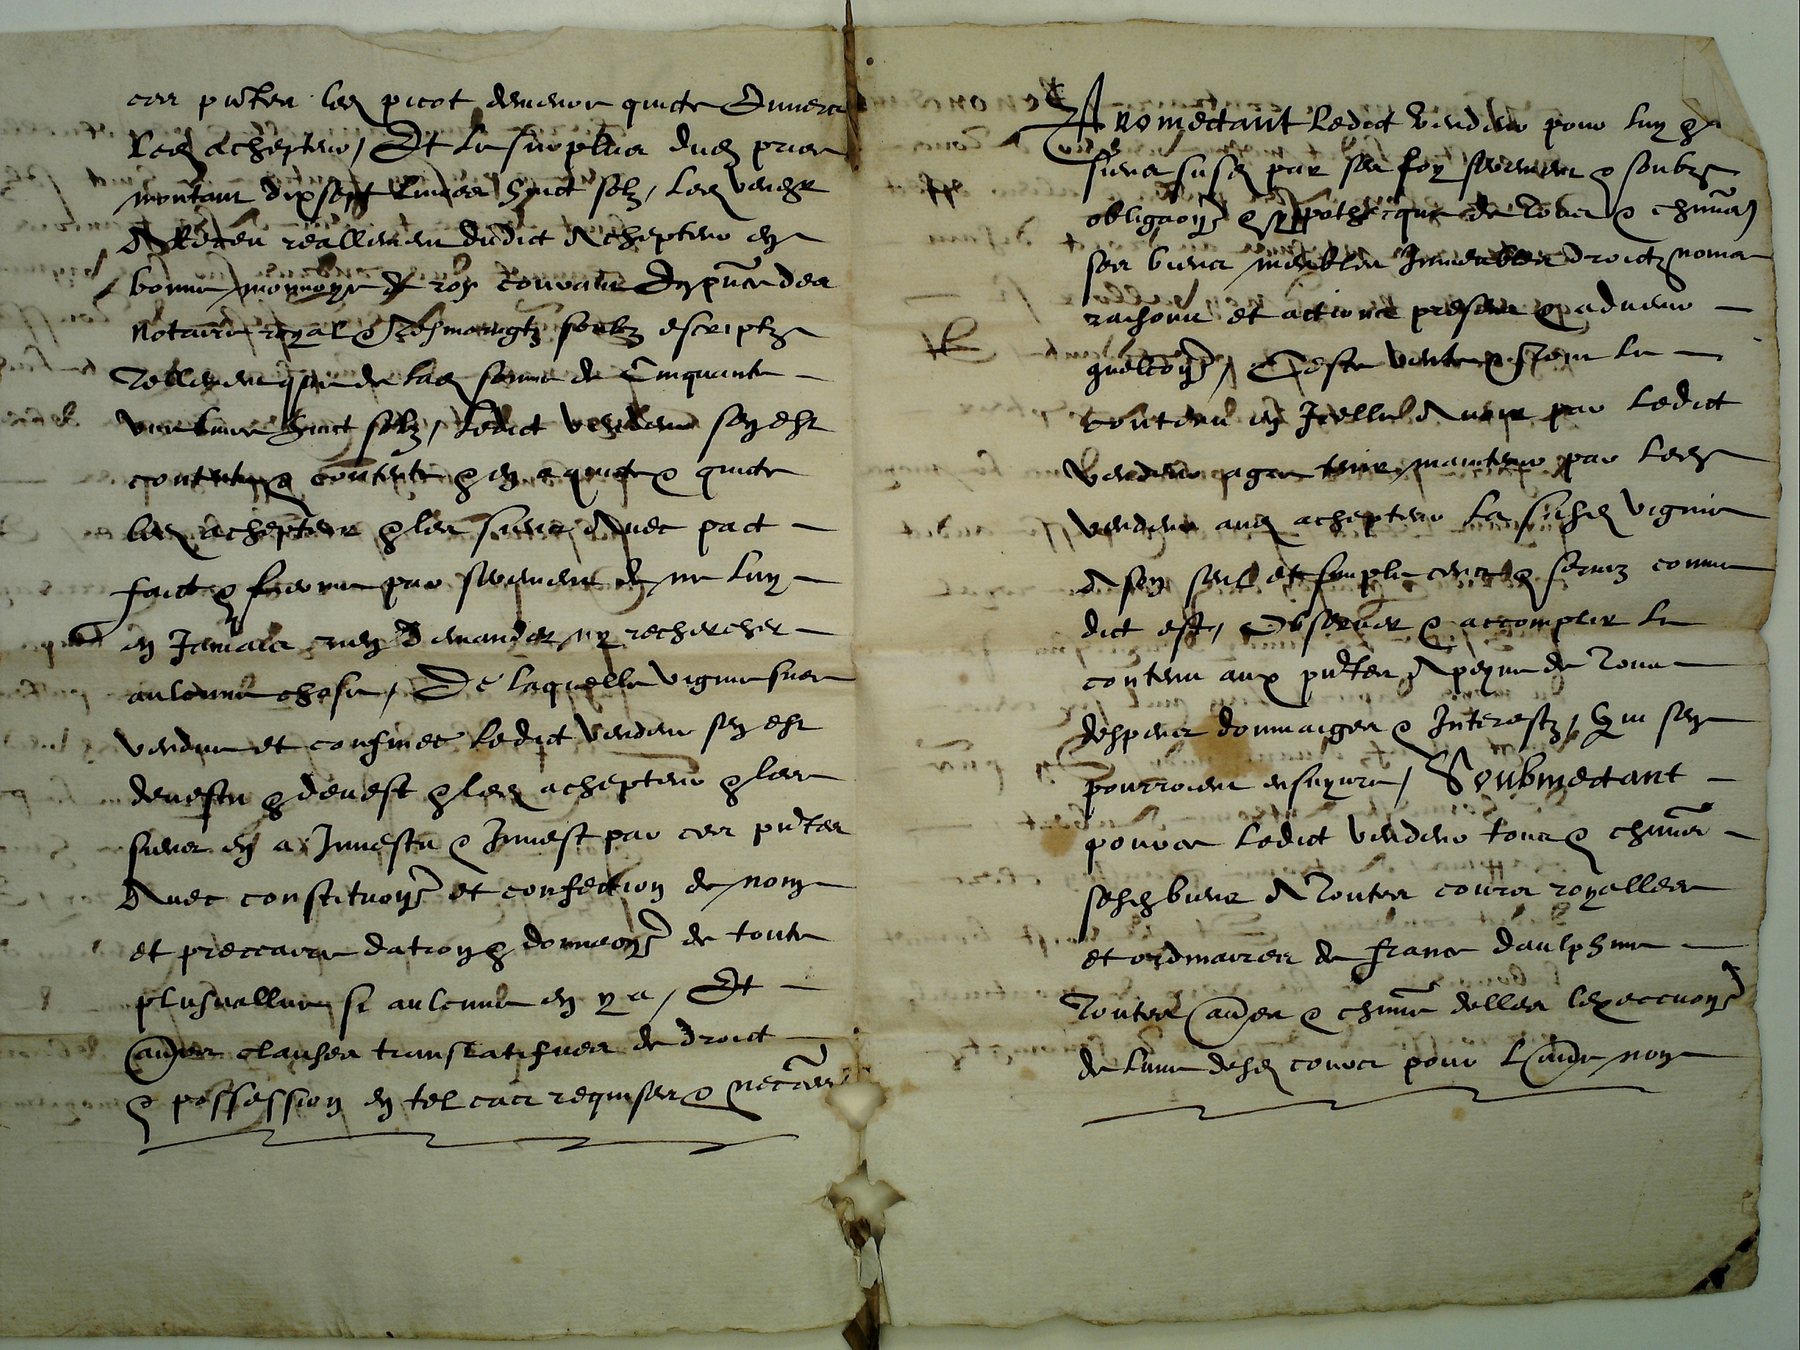 ces pntes led picot demeure quicte Envers
led achepteur, Et le surplus dud pris
montant dix sept livres huict solz, led vendr
A Receu reallement dudict Achepteur en
bonne monnoye de roy courante En pnce des
notaire royal & tesmoingtz soubz escriptz
Tellement que de lad somme de Cinquante
une livre huict solz, Ledict vendeur sen est
contenté & contente & en a quicté & quicte
led achepteur & les siens Avec pact
faict & ferme par serement de ne luy
en Jamais rien demander ny rechercher
aulcune chose, De laquelle vigne sus
vendue et confinée Ledict vendeur sen est
devestu & devest & led achepteur & les
siens en a Investu & Invest par ces pntes
Avec constituon et confection de nom
et preccaire dation & donnaon de toute
plusvallue si aulcune en y a, Et
aues clauses translatifves de droict
& possession en tel cas requises & necres
Promectant Ledict vendeur pour luy & les
siens susd par sa foy serement & soubz
obligaon & ypothecque de tous & chuns
ses biens meubles Immeubles droictz noms
raisons et actions presens & advenir
queltoys, Ceste vente & tout le
contenu en Icelluy Avoir par Ledict
vendeur agre tenir maintenir par led
vendeur aud achepteur La susd vigne
A son seul et simple cens & servis comme
dict est, Observer & accomplir le
contenu aux pntes A peyne de Tous
despens dommaiges & Interestz, Qui sen
pourroient ensuyvre, Soubmectant
pource Ledict vendeur tous & chuns
sesd biens A Toutes cours royalles
et ordinaires de france daulphine
Toutes aues & chune delles lexecuon
de lune desd cours pour Laue non